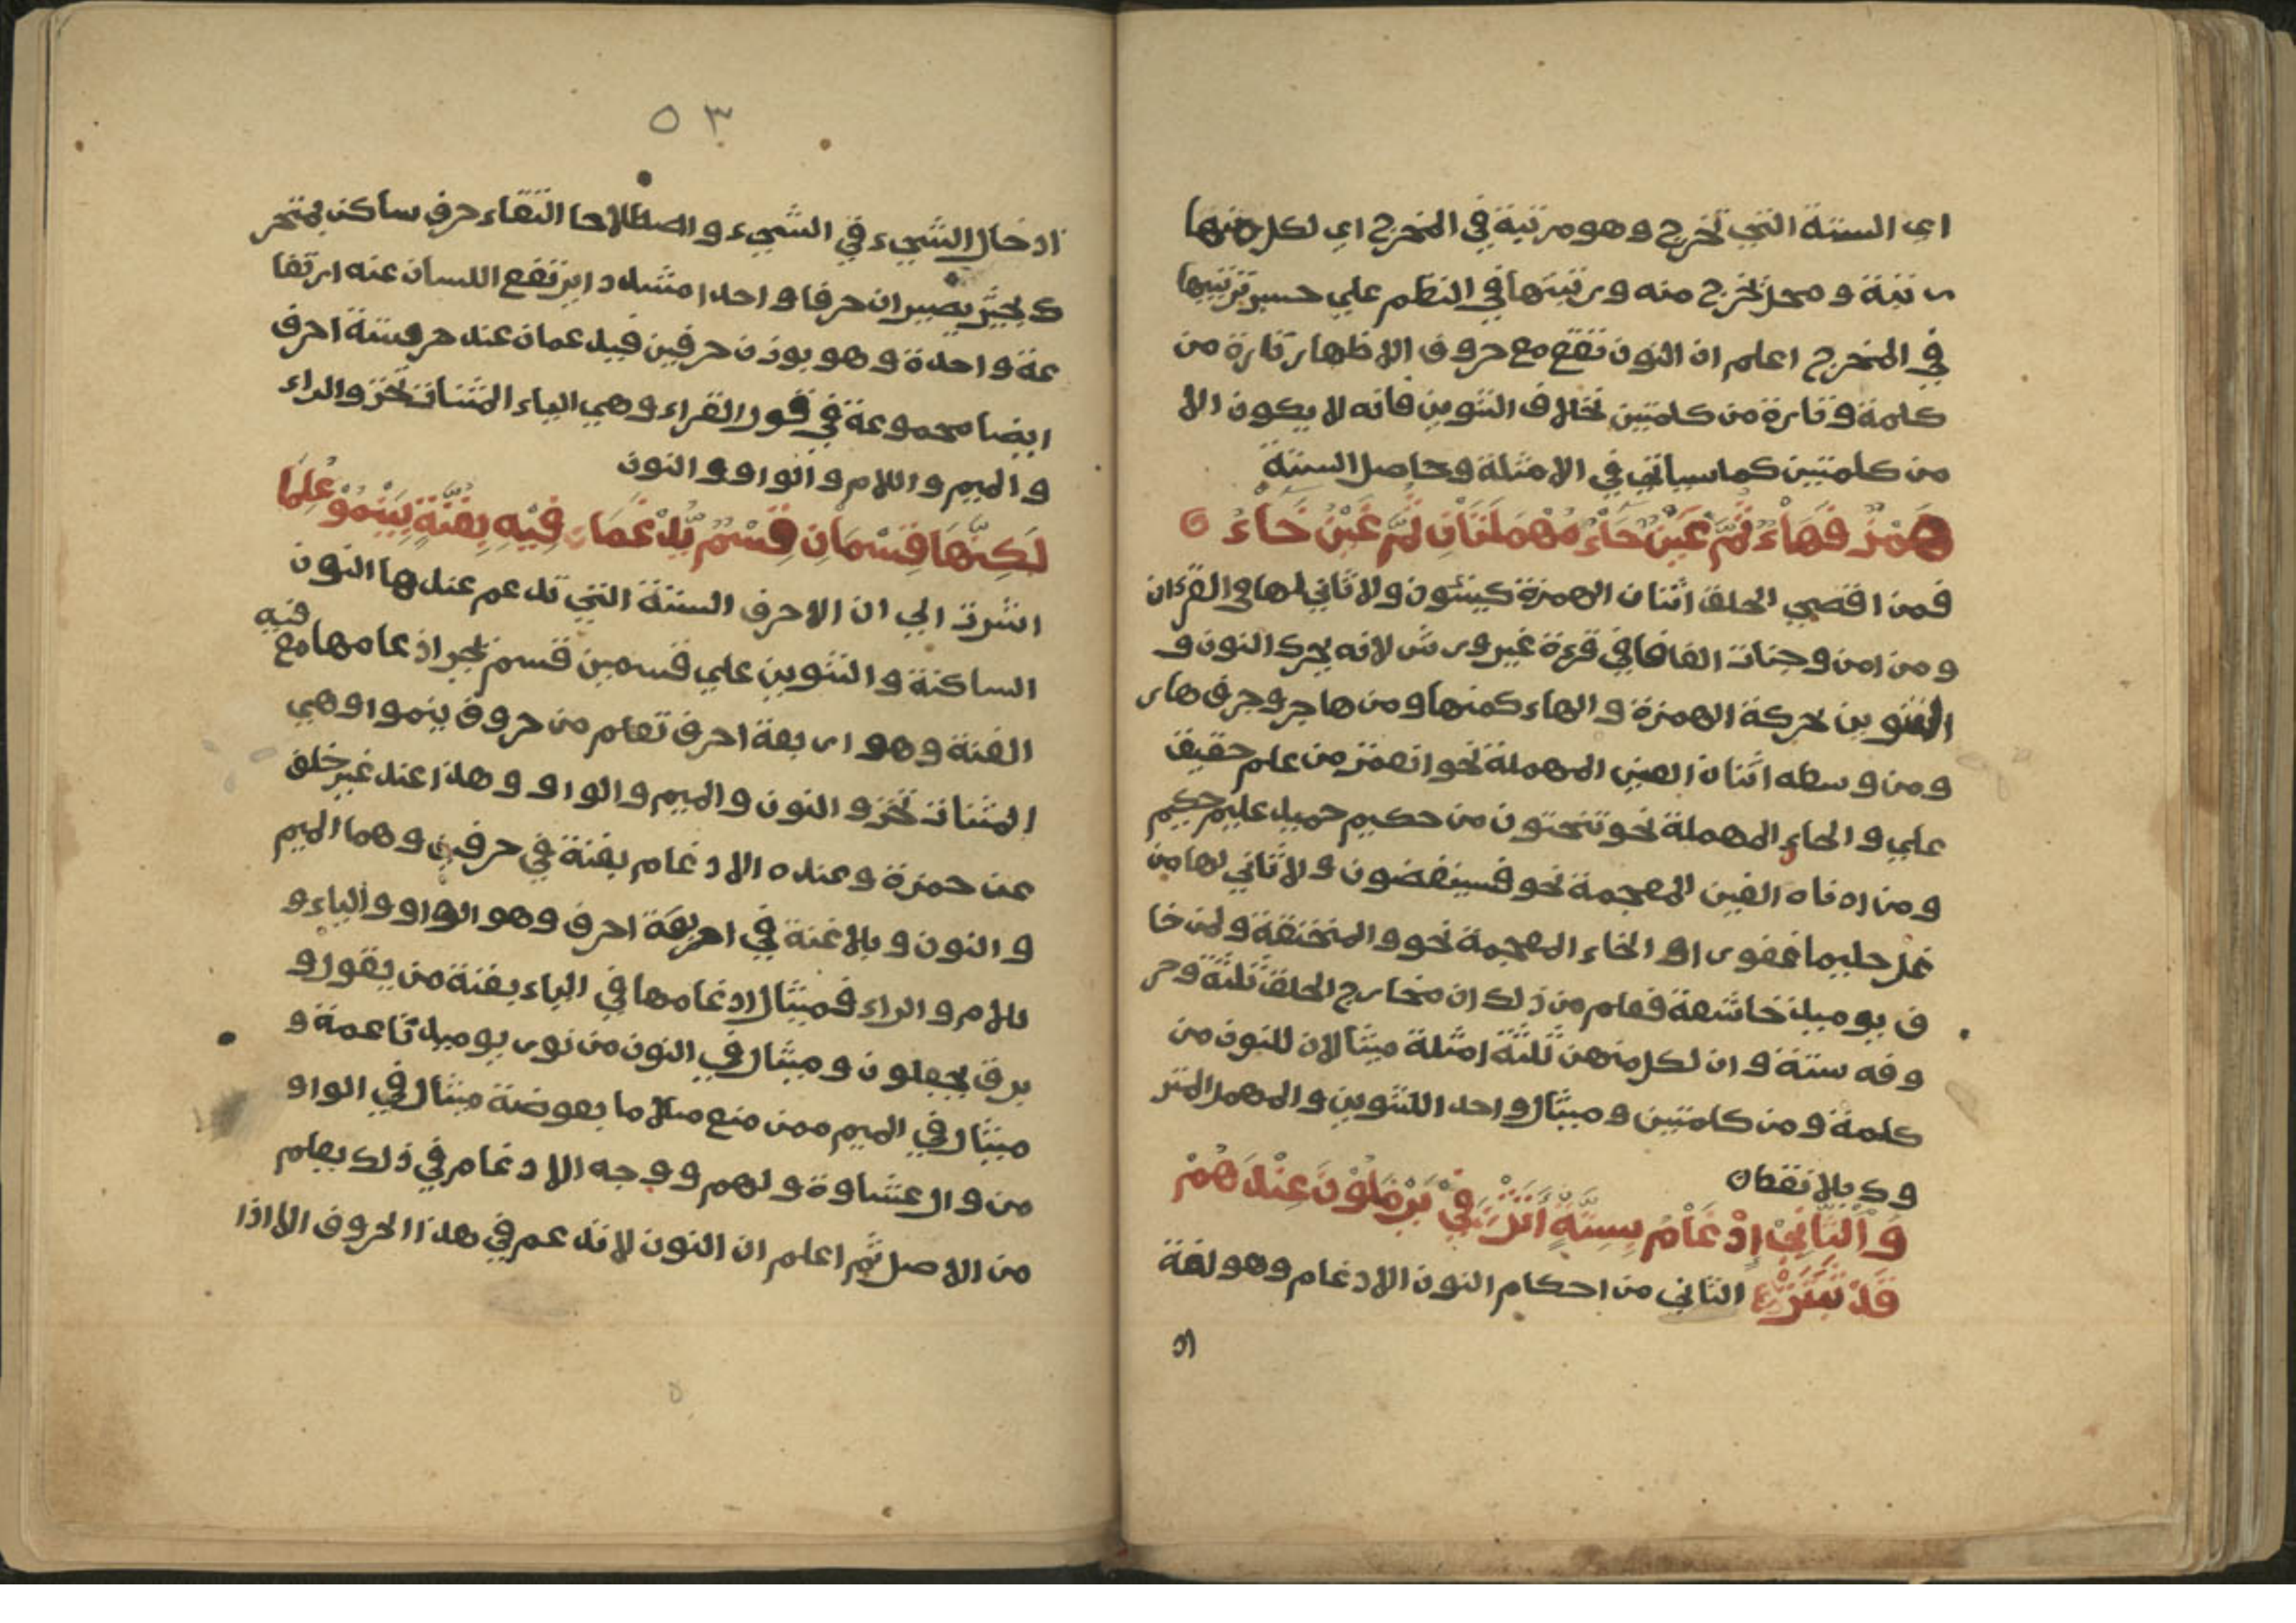 اي الستة التي تخرج وهو مرتبة في المخرج اي لكل منها
رتبة ومحل تخرج منه ورتبتها في النظم علي حسب ترتيبها
في المخرج اعلم ان النون تقع مع حروف الاظهار تارة من
كلمة وتارة من كلمتين بخلاف التنوين فانه لا يكون الا
من كلمتين كما سياتي في الامثلة وحاصل الستة
هَمْزٌ فَهَاءٌ ثُمَّ عَيْنٌ حَاءٌ مُهْمَلَتَانِ ثُمَّ غَيْنٌ خَاءٌ
فمن اقصي الحلق اثنان الهمزة كينئون ولا ثاني لها في القرءان
ومن امن وجنات الفافا في قرءة غير ورش لانه يحرك النون و
التنوين بحركة الهمزة والهاء كمنها ومن هاجر وجرف هار
ومن وسطه اثنان العين المهملة نحو انعمت من علم حقيق
علي والحاء المهملة نحو تنحتون من حكيم حميد عليم حكيم
ومن ادناه الغين المعجمة نحو فسينغضون ولا ثاني لها من
غل حليما غفورا والخاء المعجمة نحو والمنخنقة ولمن خا
ف يوميذ خاشعة فعلم من ذلك ان مخارج الحلق ثلثة وحر
وفه ستة وان لكل منهن ثلثة امثلة مثالان للنون من
كلمة ومن كلمتين ومثال واحد اللتنوين والمهمل المتر
وك بلا نقطه
وَالثَّانِيْ اِدْغَامٌ بِسِتَّةٍ اَتَتْ فِيْ يَرْمَلُوْنَ عِنْدَهُمْ
قَدْ ثَبَتَتْ الثاني من احكام النون الادغام وهو لغة
اد
٥٣
ادخال الشيء في الشيء واصطلاحا التقاء حرف ساكن بمتحر
ك بحيث يصيران حرفا واحدا مشددا يرتفع اللسان عنه ارتفا
عة واحدة وهو بوزن حرفين فيدغمان عند حروف ستة احرف
ايضا مجموعة في قول القراء وهي الياء المثنات تحت والراء
والميم واللام والواو والنون
لَكِنَّهَا قِسْمَانِ قِسْمٌ يُدْغَمَا فِيْهِ بِغُنَّةٍ بِيَنْمُوْ عُلِمَا
اشرت الي ان الاحرف الستة التي تدغم عندها النون
الساكنة والتنوين علي قسمين قسم يجب ادغامها مع فيه
الغنة وهو اربعة احرف تعلم من حروف ينموا وهي
المثنات تحت والنون والميم والواو وهذا عند غير خلف
عن حمزة وعنده الادغام بغنة في حرفين وهما الميم
والنون وبلا غنة في اربعة احرف وهو الواو والياء و
للام والراء فمثال ادغامها في الياء بغنة من يقول و
برق يجعلون ومثال في النون من نور يوميذ ناعمة و
مثال في الميم ممن منع مثلا ما بعوضة مثال في الواو
من وال غشاوة ولهم ووجه الادغام في ذلك يعلم
من الاصل ثم اعلم ان النون لا تدغم في هذا الحروف الا اذا